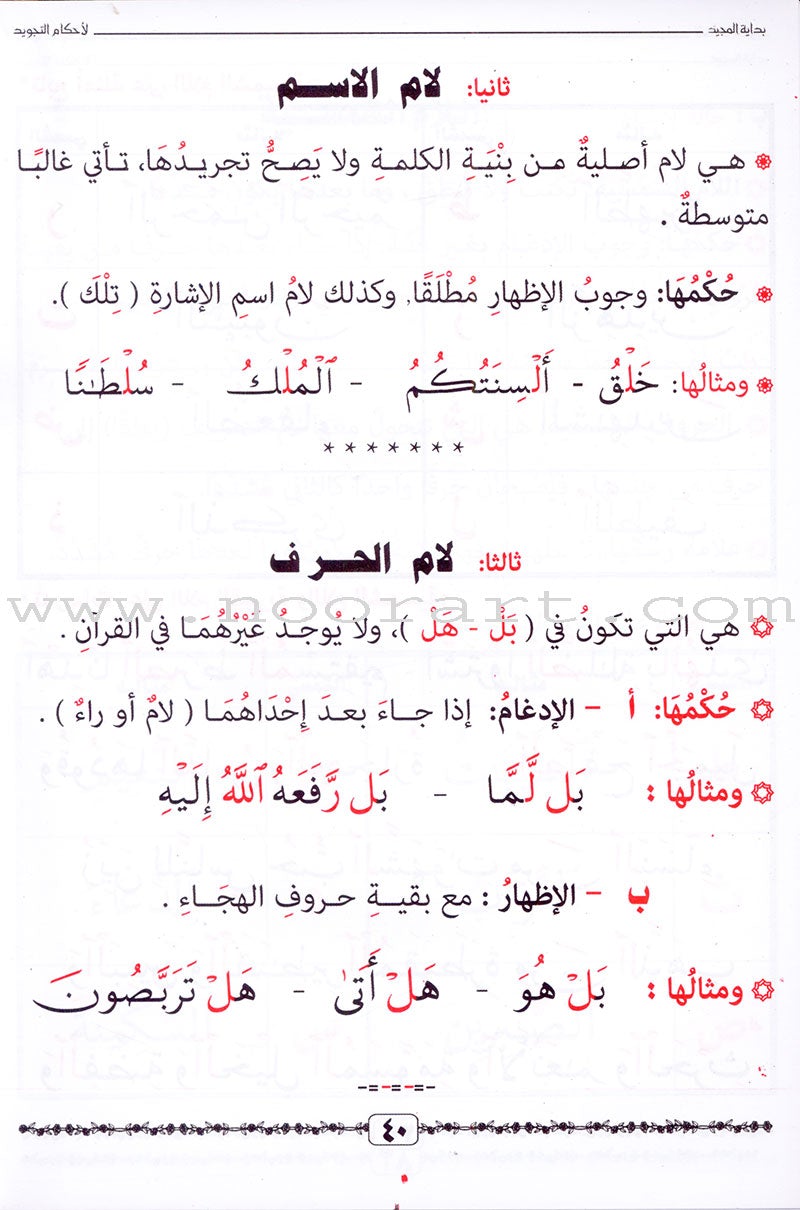 بداية المجيد لأحكام التجويد
ثانيا: لام الاسم
هي لام أصليةٌ من بِنْيَةِ الكلمةِ ولا يَصحُّ تجريدُهَا، تأتي غالبًا
متوسطةٌ .
حُكْمُهَا: وجوبُ الإظهارِ مُطْلَقًا, وكذلك لامُ اسمِ الإشارةِ ( تِلْكَ ).
ومثالُها: خَلْقُ - أَلْسِنَتُكُمُ - ٱلْمُلْكُ - سُلْطَـٰنًا
* * * * * * *
ثالثا: لام الحرف
هي التي تكونُ في ( بَلْ - هَلْ )، ولا يُوجدُ غَيْرُهُمَا في القرآنِ .
www.noorart.com
حُكْمُهَا: أ - الإدغامُ: إذا جاءَ بعدَ إِحْدَاهُمَا ( لامٌ أو راءٌ ) .
ومثالُها : بَل لَّمَّا - بَل رَّفَعَهُ ٱللَّهُ إِلَيْهِ
ب - الإظهارُ : مع بقيةِ حروفِ الهجَاءِ .
ومثالُها : بَلْ هُوَ - هَلْ أَتَىٰ - هَلْ تَرَبَّصُونَ
-=-=-=-
٤٠